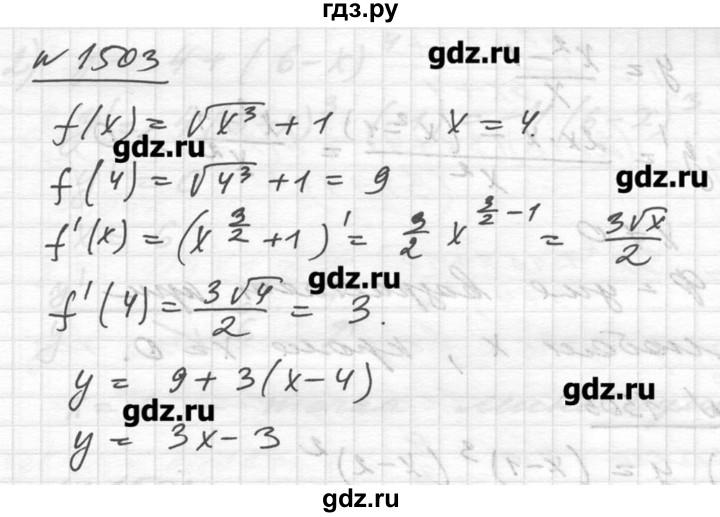 гдз.ру
№ 1503
gdz.ru
f(x) = √x³ + 1     x = 4.
gdz.ru
f(4) = √4³ + 1 = 9
gdz.ru
f'(x) = (x^(3/2) + 1)' = 3/2 x^(3/2 - 1) = 3√x/2
gdz.ru
f'(4) = 3√4/2 = 3.
y = 9 + 3(x - 4)
gdz.ru
gdz.ru
y = 3x - 3
gdz.ru